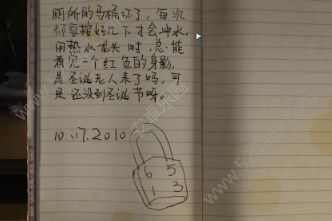 厕所的马桶坏了，每次
都要按好几下才会冲水，
闲热水龙头时，总能
看见一个红色的身影，
是圣诞老人来了吗，可
是还没到圣诞节呀。
10.17.2010
6 5
1 3